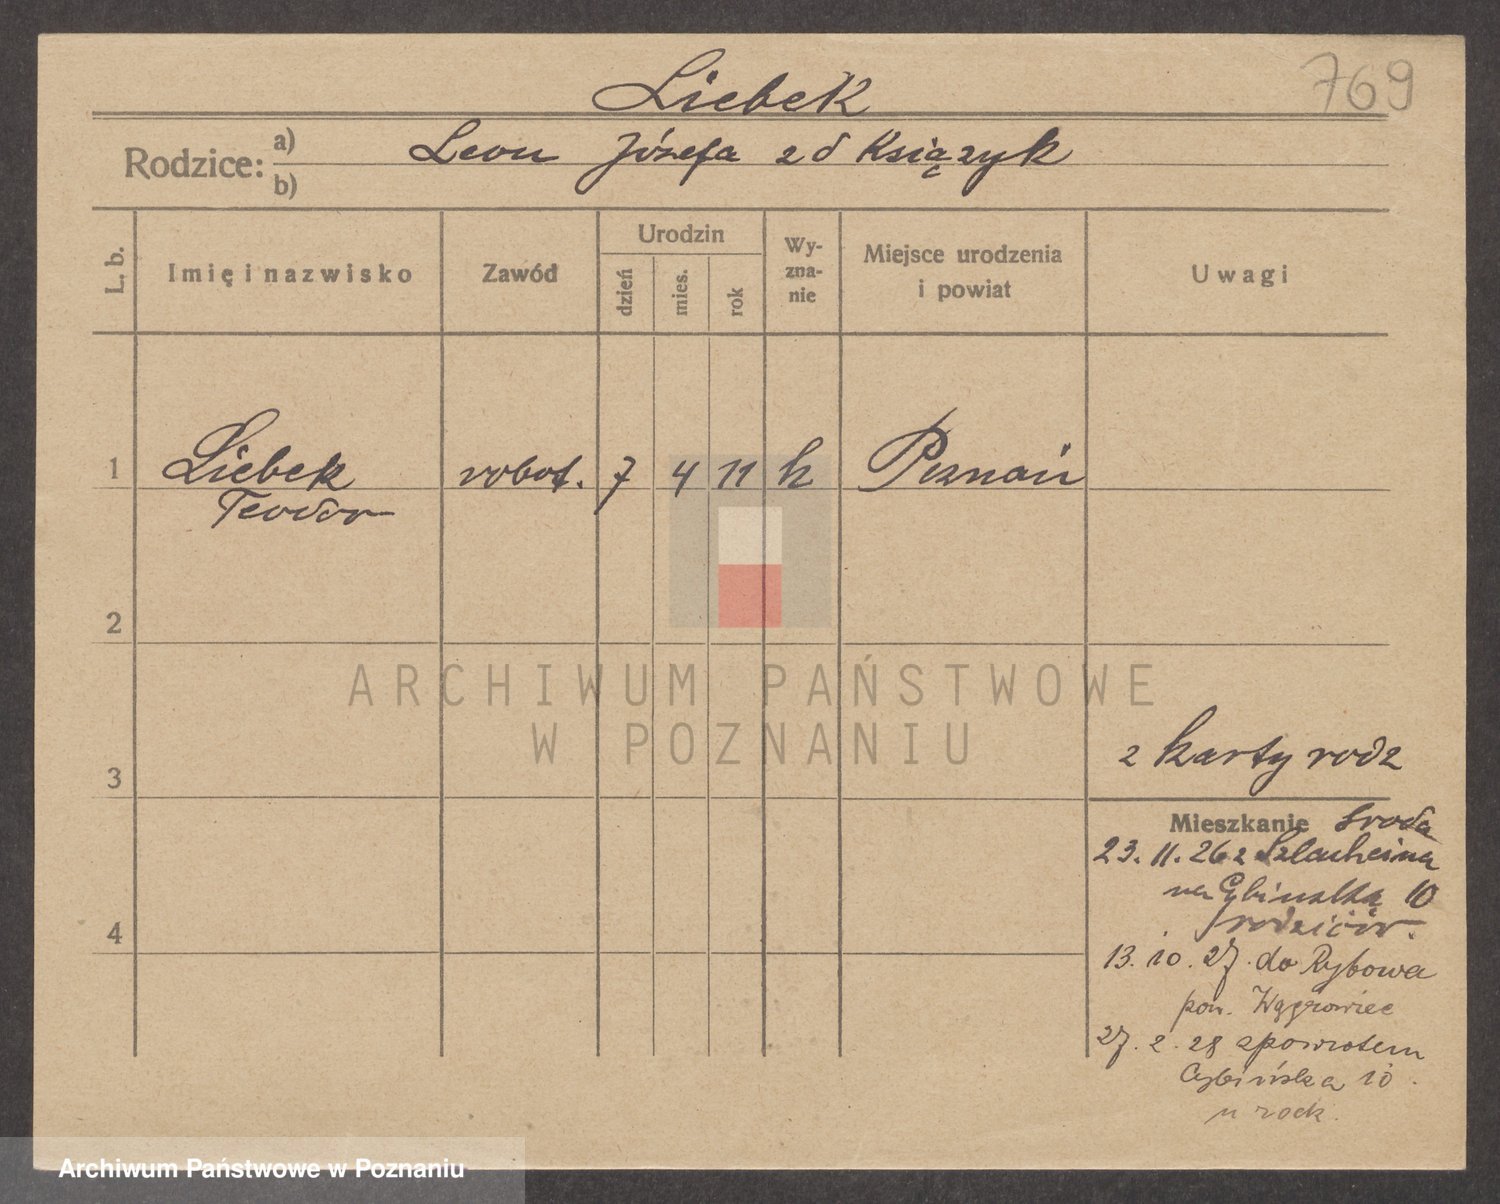 769
Liebek
Rodzice: a) b) Leon Józefa zd Książyk
L. b.
Imię i nazwisko
Zawód
Urodzin
dzień mies. rok
Wy-
zna-
nie
Miejsce urodzenia
i powiat
Uwagi
1 Liebek robot. 7 4 11 k Poznań
Teodor
2
ARCHIWUM PAŃSTWOWE
W POZNANIU
z karty rodz
3
Mieszkanie Środa
23. 11. 26 z Szlachcina
na Cybińską 10
rodziców.
4
13. 10. 27. do Rybowa
pow. Wągrowiec
27. 2. 28 zpowrotem
Cybińska 10.
u rodz.
Archiwum Państwowe w Poznaniu